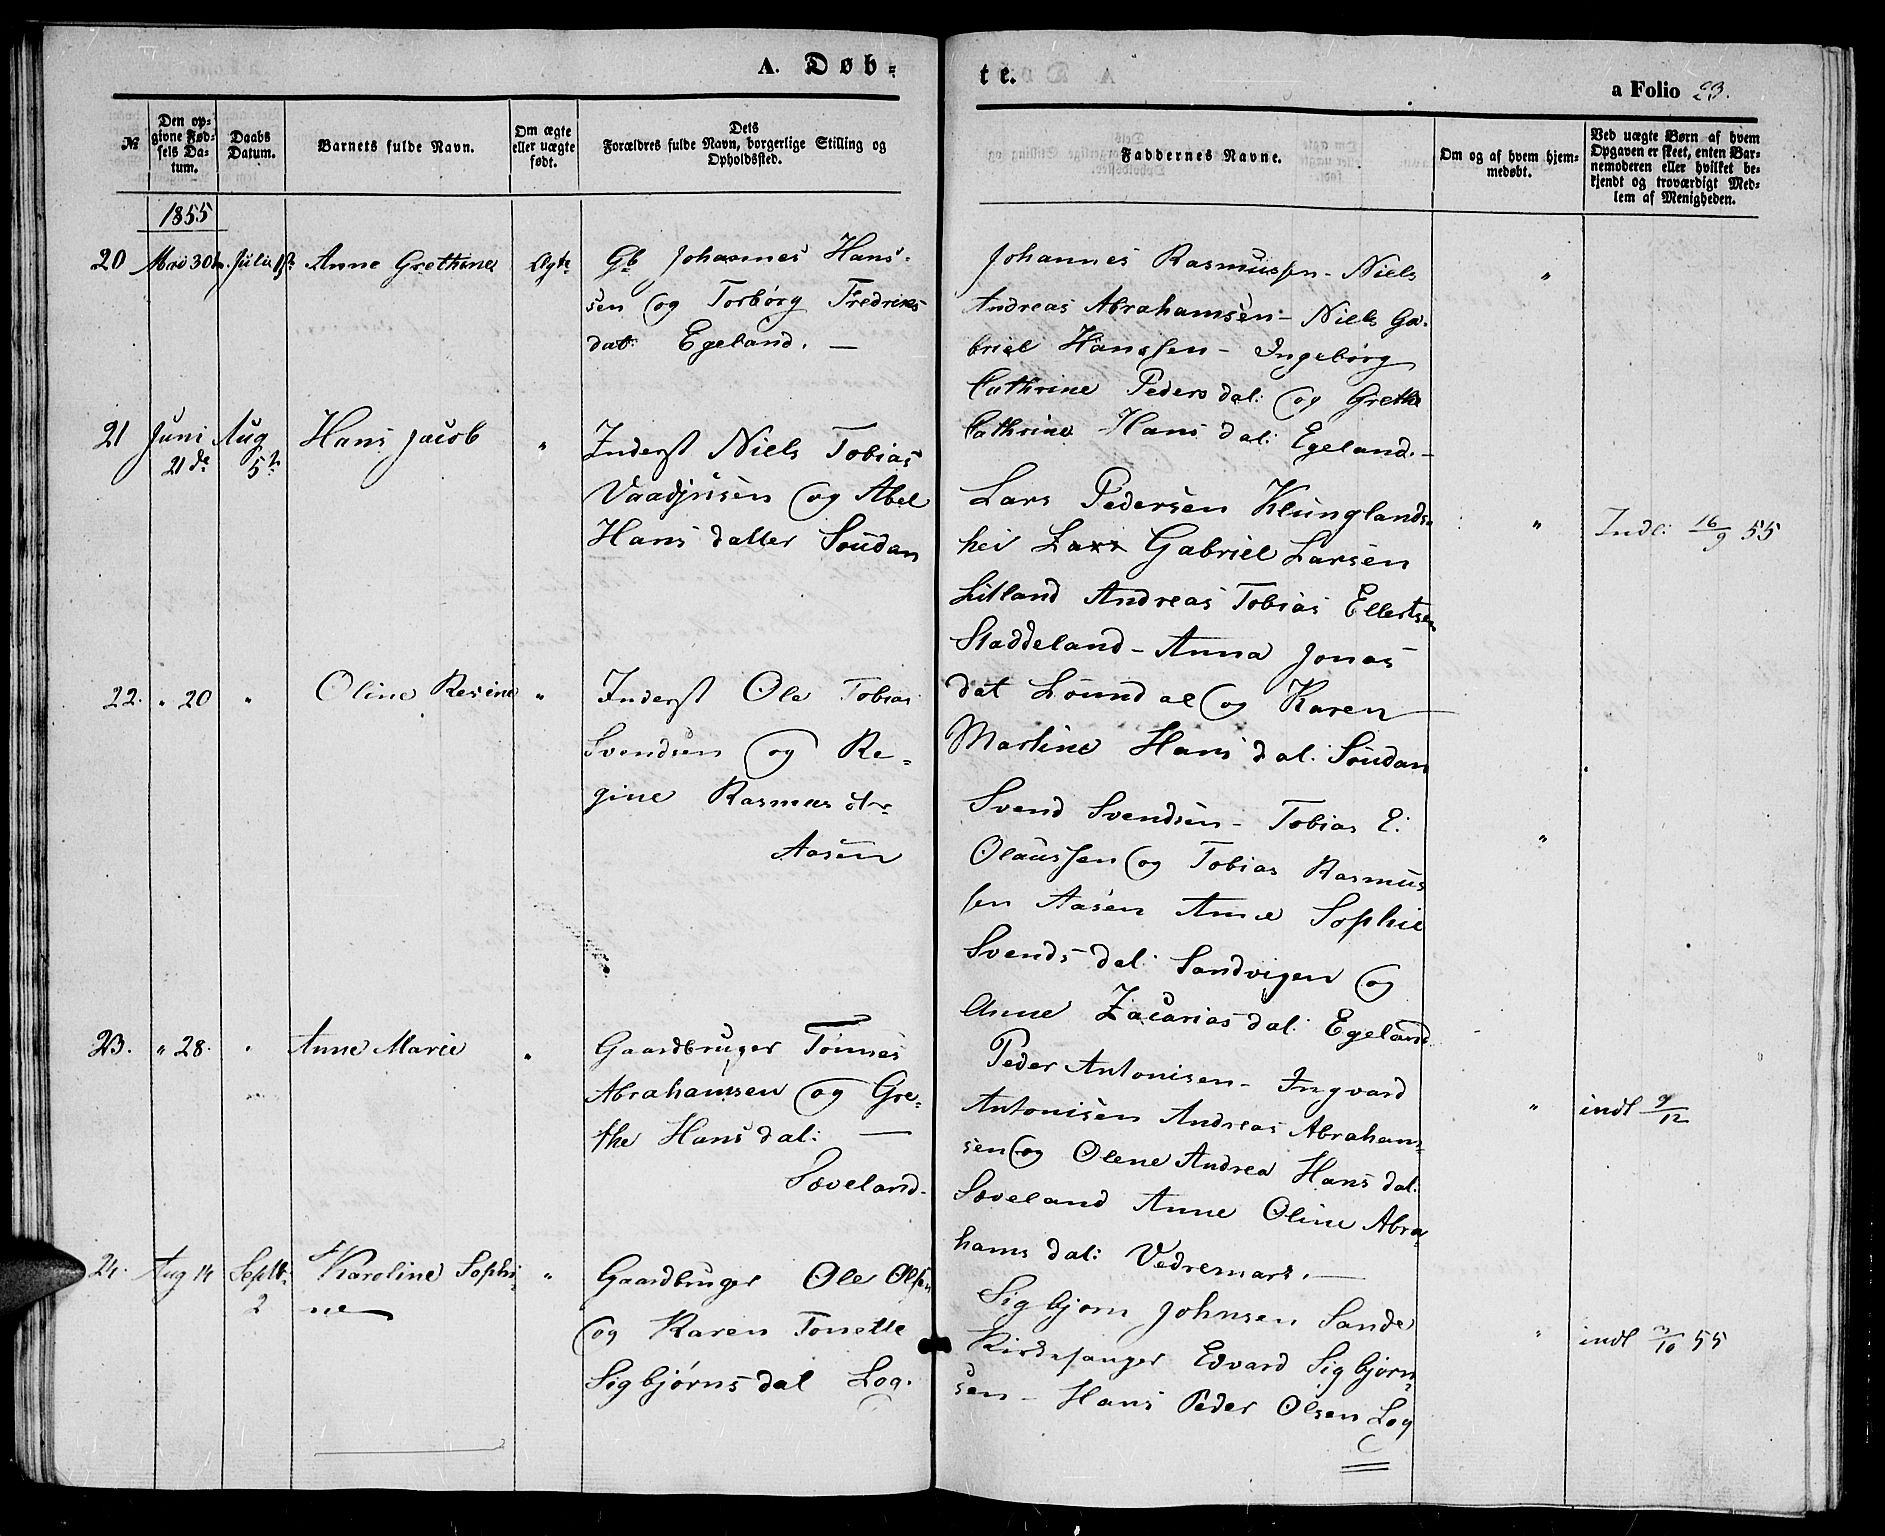 A. Døb=
te.
a Folio 23.
№
Den op=
givne Fød=
sels Da=
tum.
Daabs
Datum.
Barnets fulde Navn.
Om ægte
eller uægte
født.
Dets
Forældres fulde Navn, borgerlige Stilling og
Opholdssted.
Faddernes Navne.
Om og af hvem hjem=
medøbt.
Ved uægte Børn af hvem
Opgaven er skeet, enten Bar=
nemoderen eller hvilket be=
kjendt og troværdigt Med=
lem af Menigheden.
1855
20 30 Julii 1ste Anne Grethine Ægte
Gb Johannes Hans-
sen og Torborg Fredriks
dat: Egeland. —
Johannes Rasmussen - Niels
Andreas Abrahamsen - Niels Ga-
briel Hanssen - Ingeborg
Cathrine Peders dal: og Grethe
Cathrine Hans dal: Egeland. -
"
21 Juni 21de Aug 5te Hans Jacob "
Inderst Niels Tobias
Vaadjusen og Abel
Hans datter Soudan
Lars Pedersen Klunglands-
hei Lars Gabriel Larsen
Litland Andreas Tobias Ellertsen
Staddeland - Anna Jonas
dat Loundal og Karen
Martine Hans dal. Soudan
" Indl: 16/9 55
22. " 20 " Oline Resine "
Inderst Ole Tobias
Svendsen og Re=
gine Rasmus dtr
Aasen
Svend Svendsen - Tobias E.
Olaussen og Tobias Rasmus
sen Aasen Anne Sophie
Svends dal: Sandvigen og
Anne Zacarias dal: Egeland
"
23. " 28. " Anne Marie "
Gaardbruger Tønnes
Abrahamsen og Gre-
the Hans dal: —
Soveland.
Peder Antonisen - Ingvard
Antonisen Andreas Abraham-
sen og Olene Andrea Hans dal:
Soveland Anne Oline Abra-
hams dal: Vedremark. —
" indl 9/12
24. Aug 14 Septb. 2 Karoline Sophi-
ne "
Gaardbruger Ole Olsen
og Karen Tonette
Sigbjørns dal Log.
Sigbjørn Johnsen Sande
Kirkesanger Edvard Sigbjørn-
sen - Hans Peder Olsen Log
" indl 3/10 55